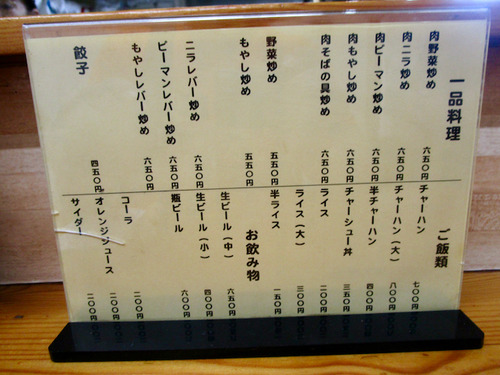 一品料理
肉野菜炒め 六五〇円
肉ニラ炒め 六五〇円
肉ピーマン炒め 六五〇円
肉もやし炒め 六五〇円
肉そばの具炒め 六五〇円
野菜炒め 五五〇円
もやし炒め 五五〇円
ニラレバー炒め 六五〇円
ピーマンレバー炒め 六五〇円
もやしレバー炒め 六五〇円
餃子 四五〇円
ご飯類
チャーハン 七〇〇円
チャーハン(大) 八〇〇円
半チャーハン 四〇〇円
チャーシュー丼 三五〇円
ライス 二〇〇円
ライス(大) 三〇〇円
半ライス 一五〇円
お飲み物
生ビール(中) 六五〇円
生ビール(小) 四〇〇円
瓶ビール 六〇〇円
コーラ 二〇〇円
オレンジジュース 二〇〇円
サイダー 二〇〇円